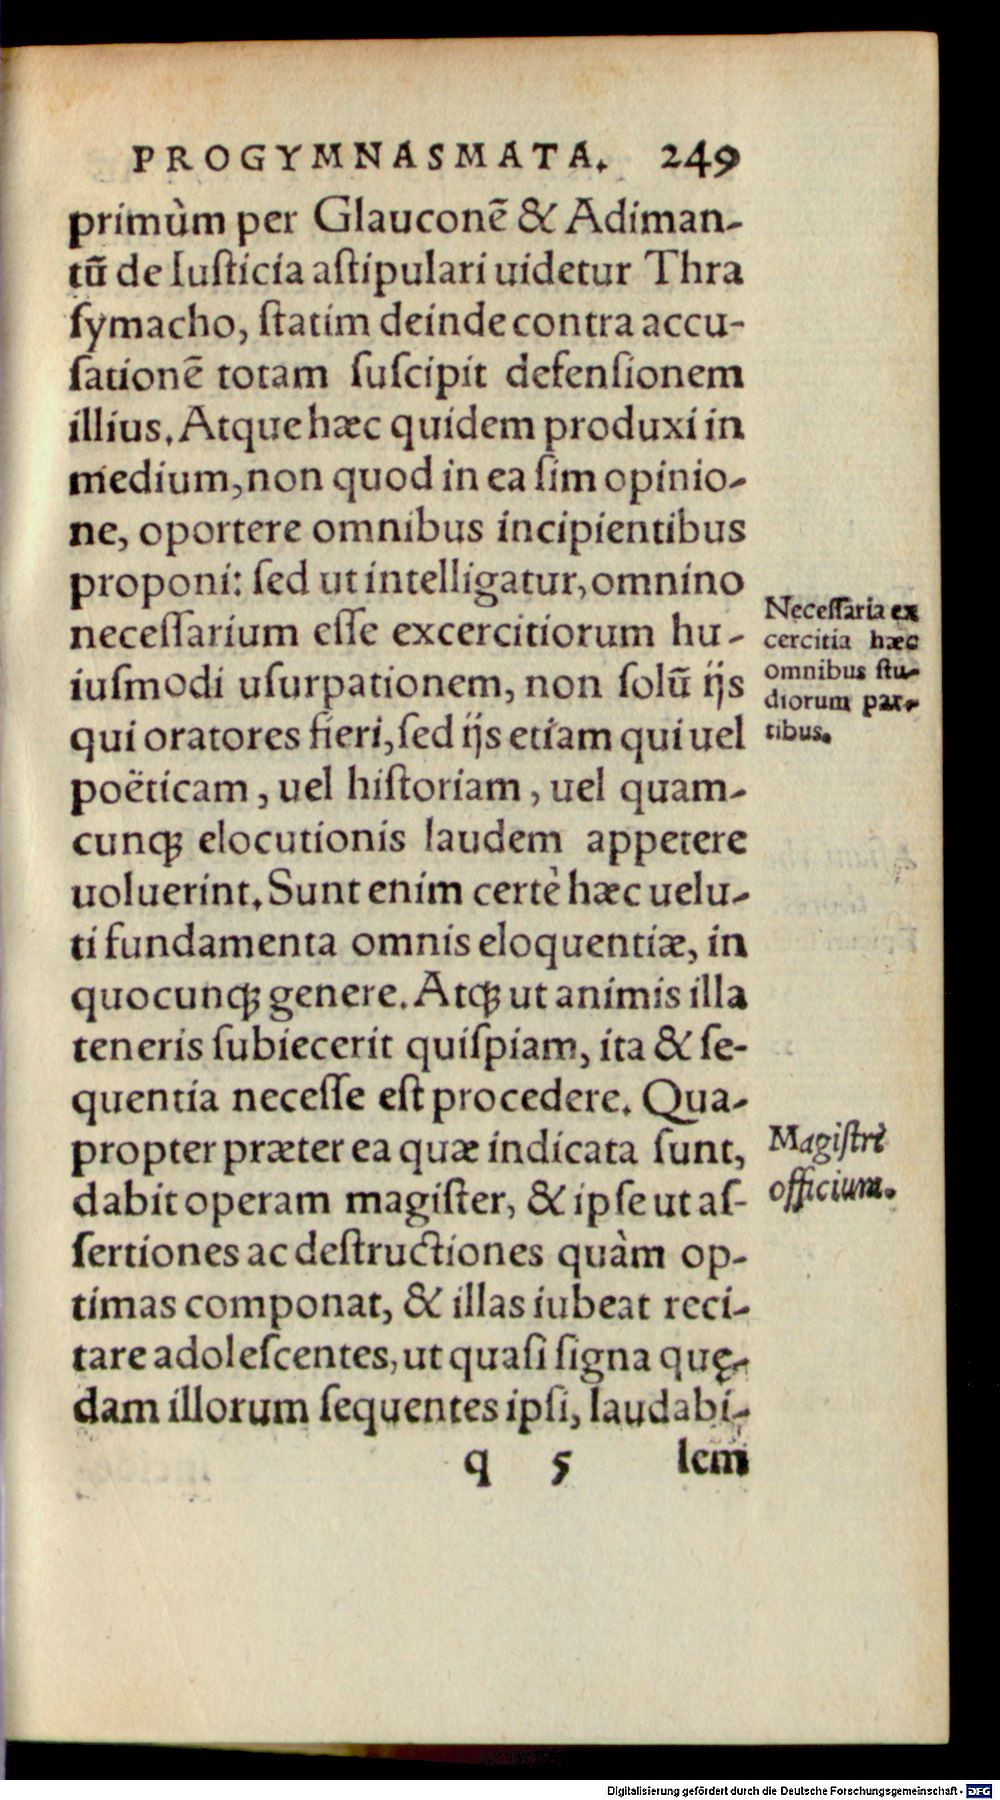 PROGYMNASMATA. 249
primùm per Glauconē & Adiman-
tū de Iusticia astipulari uidetur Thra
symacho, statim deinde contra accu-
sationē totam suscipit defensionem
illius. Atque hæc quidem produxi in
medium, non quod in ea sim opinio-
ne, oportere omnibus incipientibus
proponi: sed ut intelligatur, omnino
necessarium esse excercitiorum hu-
iusmodi usurpationem, non solū ijs
qui oratores fieri, sed ijs etiam qui uel
poëticam, uel historiam, uel quam-
cunqꝫ elocutionis laudem appetere
uoluerint. Sunt enim certè hæc uelu-
ti fundamenta omnis eloquentiæ, in
quocunqꝫ genere. Atqꝫ ut animis illa
teneris subiecerit quispiam, ita & se-
quentia necesse est procedere. Qua-
propter præter ea quæ indicata sunt,
dabit operam magister, & ipse ut as-
sertiones ac destructiones quàm op-
timas componat, & illas iubeat reci-
tare adolescentes, ut quasi signa quę-
dam illorum sequentes ipsi, laudabi-
q 5 lem
Necessaria ex
cercitia hæc
omnibus stu-
diorum par-
tibus.
Magistri
officium.
Digitalisierung gefördert durch die Deutsche Forschungsgemeinschaft - DFG